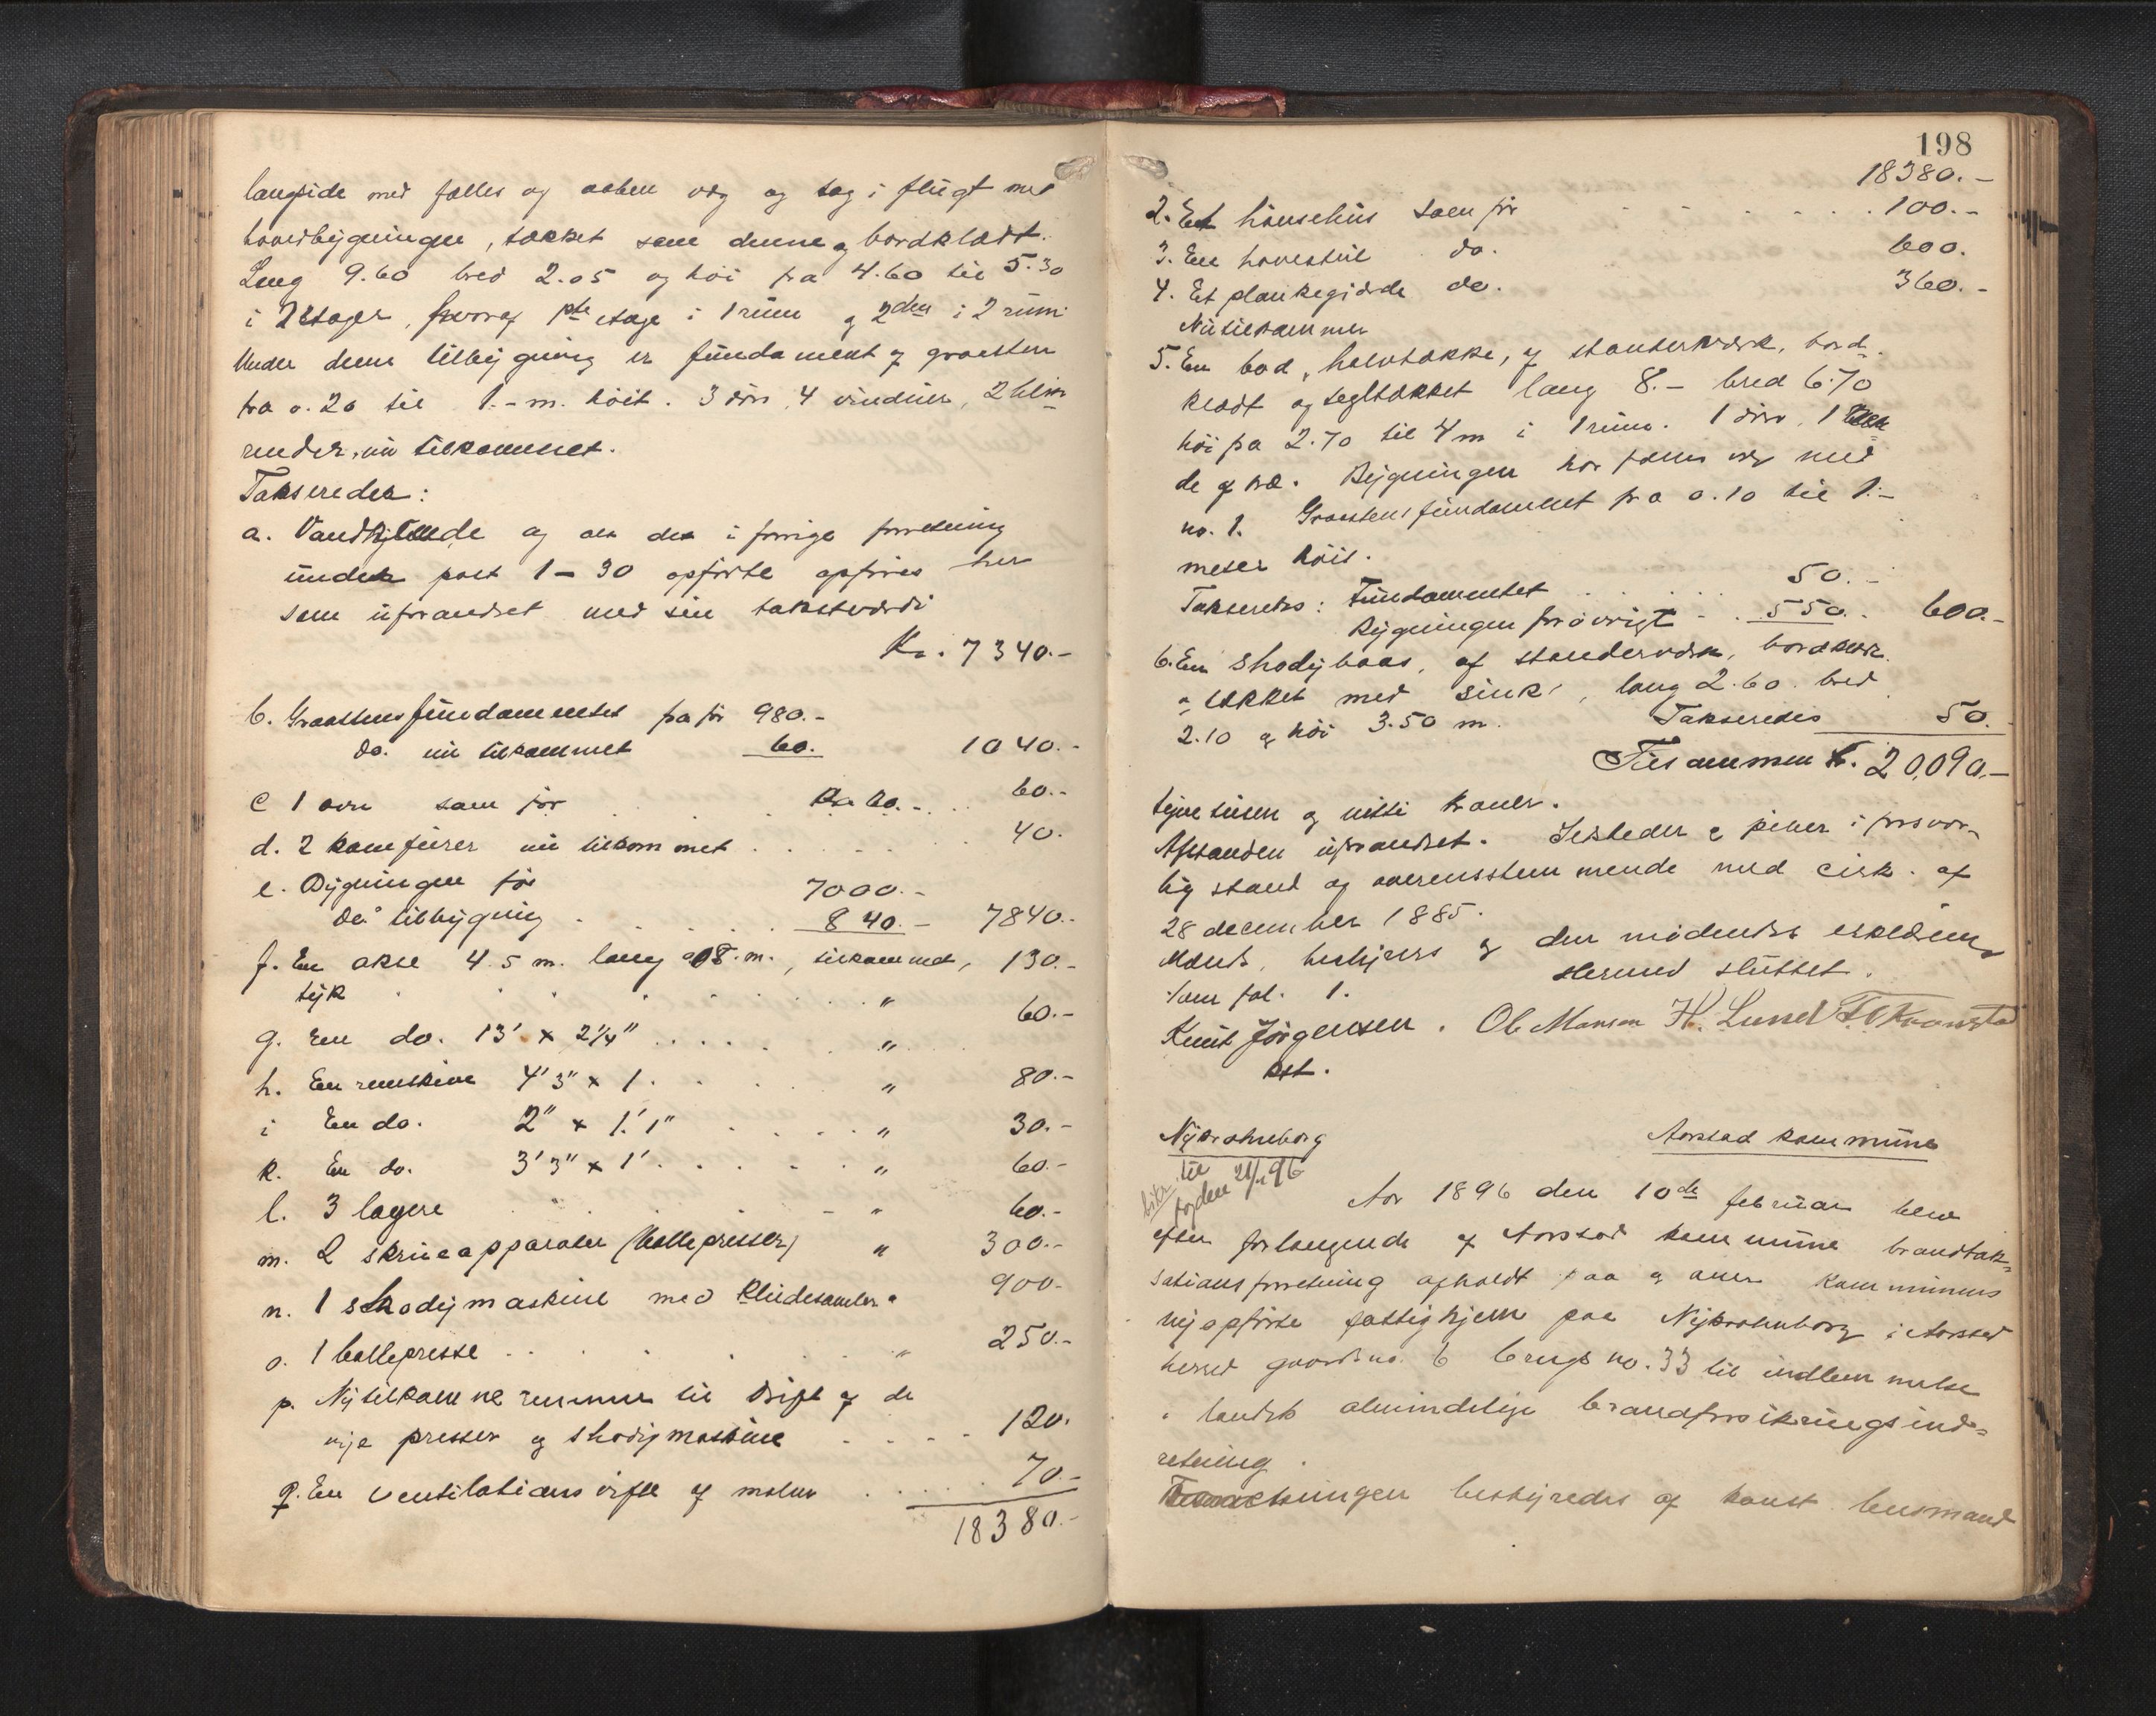 langside med fælles og aaben væg og tag i flugt med
hovedbygningen, tækket som denne og bordklædt.
Lang 9.60 bred 2.05 og høi fra 4.60 til 5.30
i 2 etager, hvoraf 1ste etage i 1 rum og 2den i 2 rum.
Under denne tilbygning er fundament af graasten
fra 0.20 til 1.- m. høit. 3 döre, 4 vinduer, 2 blik-
render, nu tilkommet.
Takseredes:
a. og alt det i forrige forretning
under post 1 - 30 opførte opføres her
som uforandret med sin takstværdi
Kr. 7340.-
b. Graastensfundamentet fra før 980.-
do. nu tilkommet 60. 1040.-
c 1 ovn som før 60.-
d. 2 komfurer nu tilkommet 40.
e. Bygningen før 7000.-
do tilbygning 840.- 7840.-
f. En akse 4.5 m. lang 08. m., tilkommet, 130.-
tyk "
g. En do. 13' x 2¼" " 60.-
h. En remskive 4'3" x 1. " 80.-
i En do. 2" x 1.'1" " 30.-
k. En do. 3'3" x 1' " 60.-
l. 3 lagere " 60.-
m. 2 skrueapparater (ballepresser) " 300.-
n. 1 shodymaskine med kludesamler " 900.-
o. 1 ballepresse " 250.-
p. Nytilkomne remmer til drift af de
nye presser og shodymaskine 120.
q. En ventilationsvifte af 70.-
18380.-
198
18380.-
2. Et hönsehus som før 100.-
3. En havestue do. 600.
4. Et plankegjærde do. 360.-
Nu tilkommer
5. En bod, halvtække, af stenderværk, bord-
klædt og tegltækket lang 8.- bred 6.70
höi fra 2.70 til 4 m i 1 rum. 1 dør, 1
de af træ. Bygningen har fælles væg med
no. 1. Graastensfundamentet fra 0.10 til 1.-
meter høit.
Takseredes: Fundamentet 50.-
Bygningen forøvrigt 550. 600.-
6. En shodybaas, af stenderværk, bordklædt
og tækket med sink, lang 2.60. bred
2.10 og höi 3.50 m. Takseredes 50.
Tilsammen Kr. 20,090.-
tyve tusen og nitti kroner.
Afstanden uforandret. Ildsteder og piber i forsvar-
lig stand og overensstemmende med cirk. af
28 december 1885.
Mænds, bestyrers og den mødendes erklæring
som fol. 1. Hermed sluttet.
Knut Jörgensen. Ole Monsen H. Lund
kst.
Nykrohnborg Aarstad kommune
til
fogden 21/ 96
Aar 1896 den 10de februar blev
efter forlangende af Aarstad kommune brandtak-
sationsforretning afholdt paa og over kommunens
nyopførte fattighjem paa Nykrohnborg i Aarstad
herred gaards no. 6 brugs no. 33 til indlemmelse
i landets almindelige brandforsikringsind-
retning.
Forretningen bestyredes af konst. lensmand